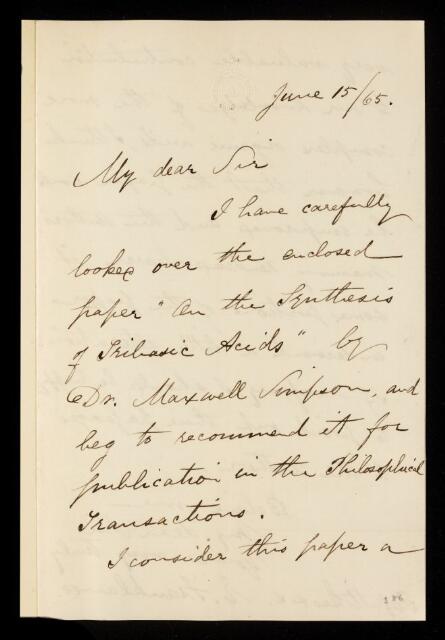 June 15/65.
My dear Sir
I have carefully
looked over the enclosed
paper "On the Synthesis
of Tribasic Acids" by
Dr. Maxwell Simpson, and
beg to recommend it for
publication in the Philosophical
Transactions.
I consider this paper a